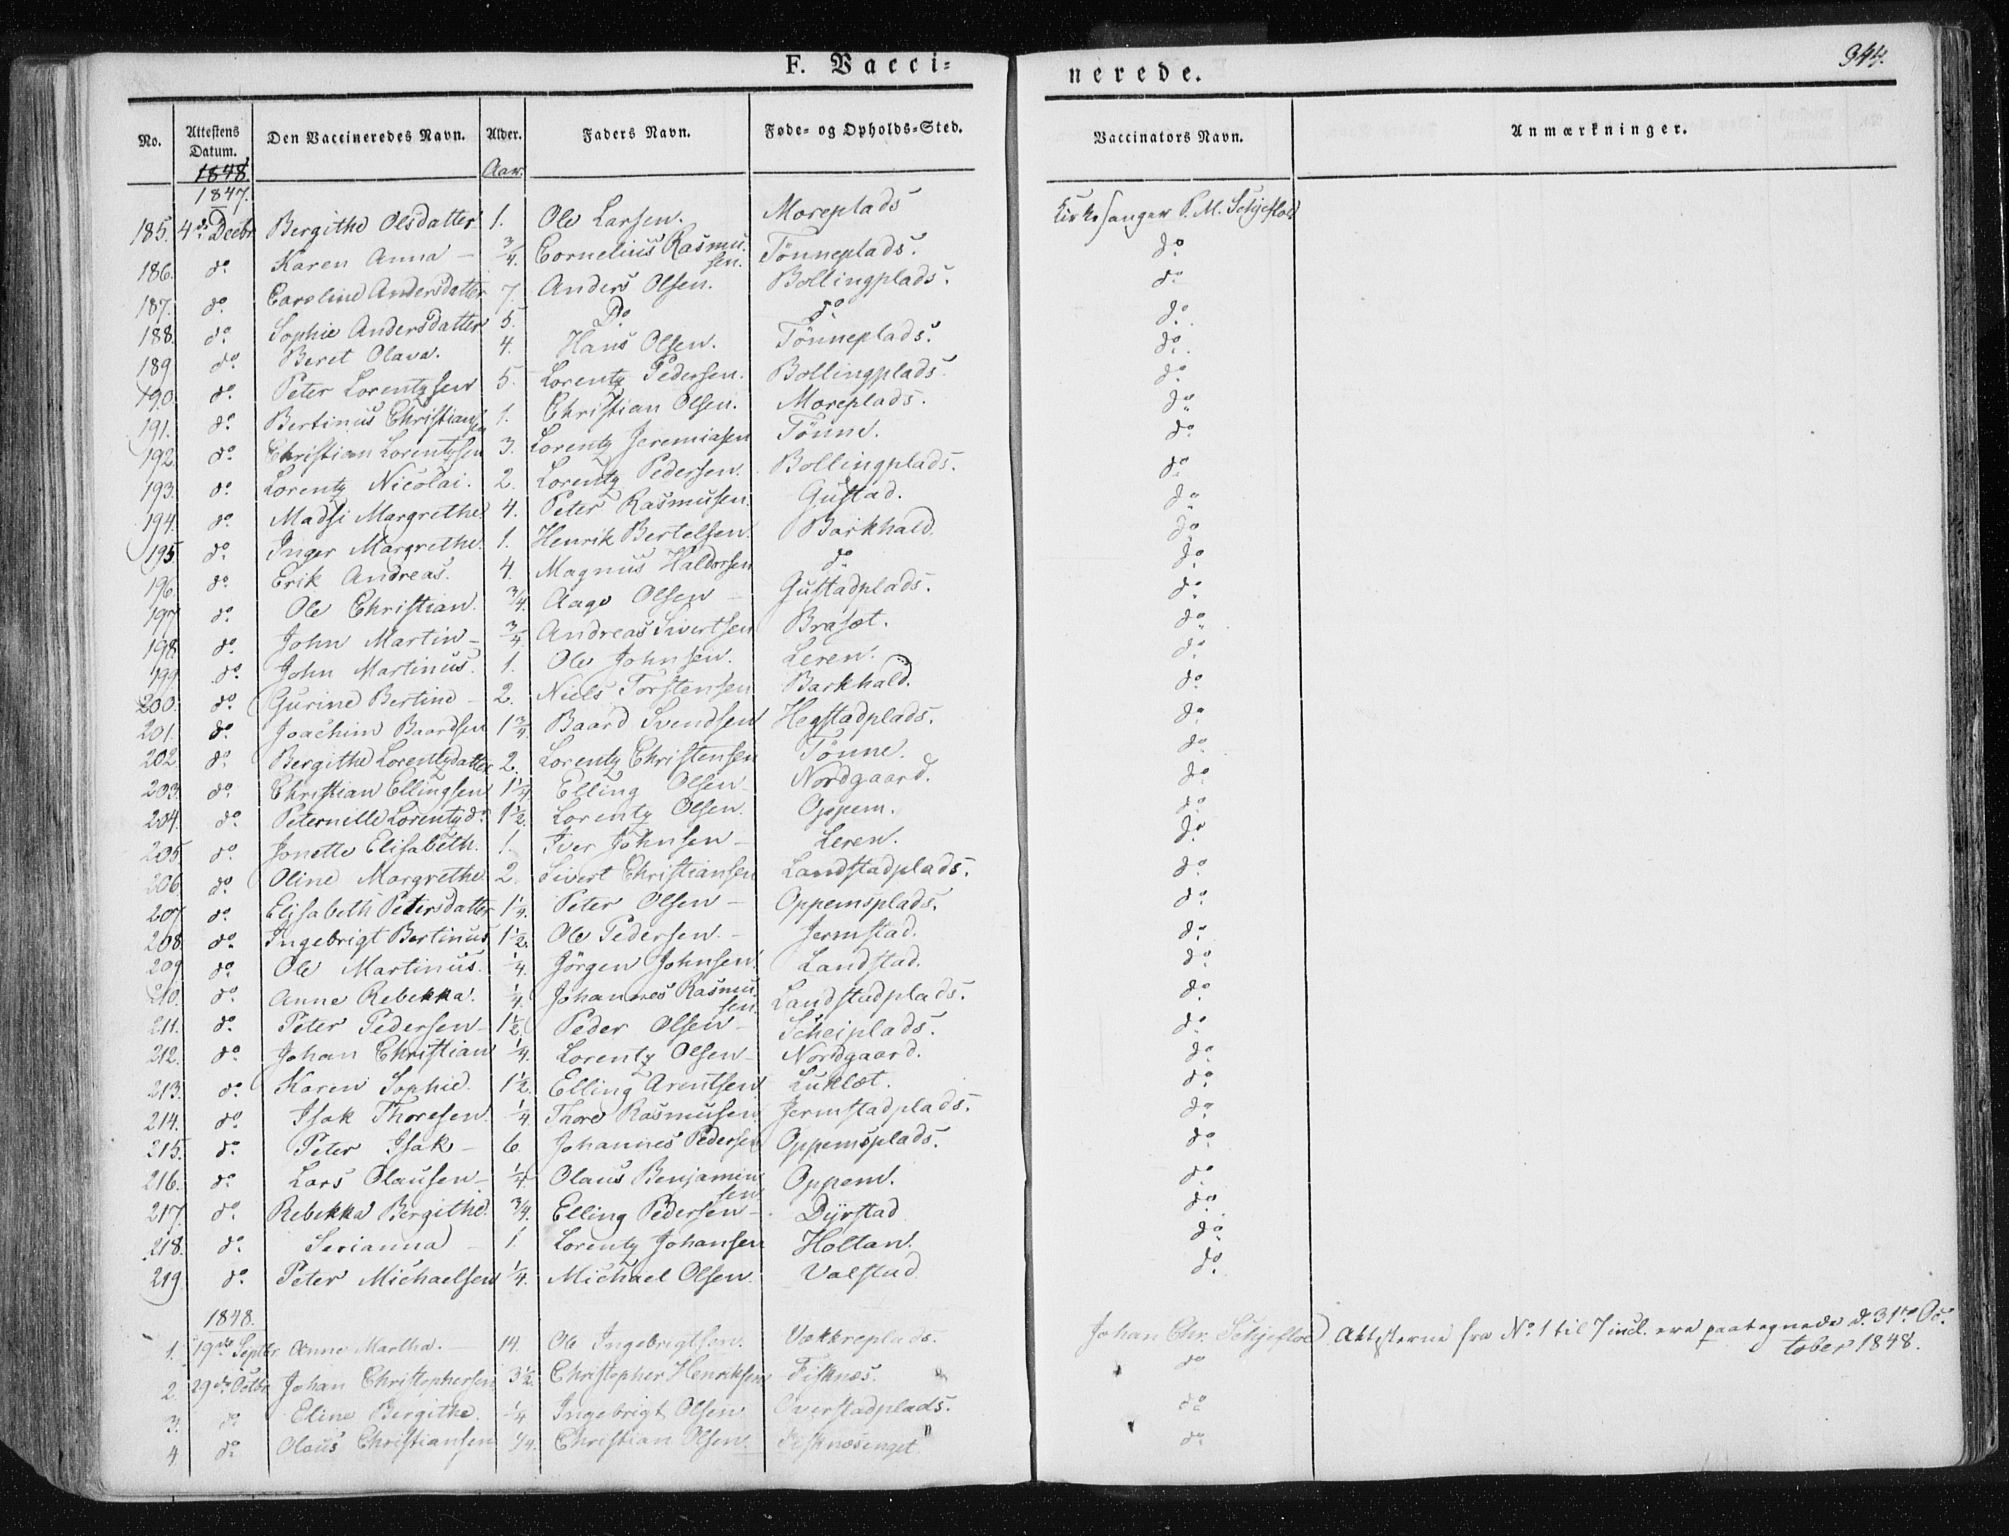 F. Vacci= nerede. 344.
No. Attestens Datum. Den Vaccineredes Navn. Alder. Faders Navn. Føde- og Opholds-Sted. Vaccinators Navn. Anmærkninger.
1848. Aar.
1847.
185. 4de Decbr Bergithe Olsdatter 1. Ole Larsen. Moreplads Kirkesanger P. M. Schjeflod
186. do Karen Anna – 3/4. Cornelius Rasmussen. Tönneplads. do
187. do Caroline Andersdatter 7. Anders Olsen. Bollingplads. do
188. do Sophie Andersdatter 5. Do do do
189 do Beret Olava. 4. Hans Olsen. Tönneplads. do
190. do Peter Lorentzsen 5. Lorentz Pedersen. Bollingplads. do
191. do Bertinus Christiansen 1. Christian Olsen. Moreplads. do
192. do Christian Lorentzsen 3. Lorentz Jeremiasen Tönne. do
193. do Lorentz Nicolai. 2. Lorentz Pedersen. Bollingplads. do
194. do Madsi Margrethe 4. Peter Rasmusen. Gustad. do
195. do Inger Margrethe. 1. Henrik Bertelsen. Barkhald. do
196. do Erik Andreas. 4. Magnus Haldorsen do do
197 do Ole Christian. 3/4. Aage Olsen – Gustadplads. do
198. do John Martin – 3/4. Andreas Sivertsen Bråsæt. do
199. do John Martinus. 1. Ole Johnsen. Leren. do
200. do Gurine Bertine – 2. Niels Torstensen Barkhald. do
201. do Joachim Baardsen 1 3/4 Baard Svendsen Hegstadplads. do
202. do Bergithe Lorentzdatter 2. Lorentz Christensen Tönne. do
203. do Christian Ellingsen 1 1/4 Elling Olsen Nordgaard. do
204. do Peternille Lorentzd. 1 1/2. Lorentz Olsen. Oppem. do
205 do Jonette Elisabeth. 1. Iver Johnsen – Leren. do
206 do Oline Margrethe 2. Sivert Christiansen Landstadplads. do
207. do Elisabeth Petersdatter 1 1/4. Peter Olsen – Oppemsplads. do
208. do Ingebrigt Bertinus 1 1/2. Ole Pedersen. – Jermstad. do
209 do Ole Martinus. 1/4. Jörgen Johnsen. Landstad. do
210. do Anne Rebekka. 1/4. Johannes Rasmussen Landstadplads. do
211. do Peter Pedersen – 1 1/2. Peder Olsen – Scheiplads. do
212. do Johan Christian 1/4. Lorentz Olsen – Nordgaard. do
213. do Karen Sophie. 1 1/2. Elling Arentsen Luklæt. do
214. do Isak Thoresen. 1/4 Thore Rasmusen Jermstadplads. do
215. do Peter Isak – 6. Johannes Pedersen Oppemsplads. do
216. do Lars Olausen – 1/4 Olaus Benjaminsen Oppem. do
217. do Rebekka Bergithe. 3/4. Elling Pedersen – Dyrstad do
218. do Serianna – 1. Lorentz Johansen Holtan. do
219 do Peter Michaelsen 1/4. Michael Olsen. Valstad do
1848.
1. 19de Septbr Anne Martha. – 14. Ole Ingebrigtsen. Vækkreplads. Johan Chr. Schjeflod Attesterne fra No 1 til 7 incl. ere paategnede d. 31te October 1848.
2. 29de Octbr Johan Christophersen 3 1/2. Christopher Henriksen Fisknæs. do
3. do Eline Bergithe. 1/4 Ingebrigt Olsen Overstadplads. do
4 do Olaus Christiansen 1/4. Christian Olsen. Fisknæsenget do